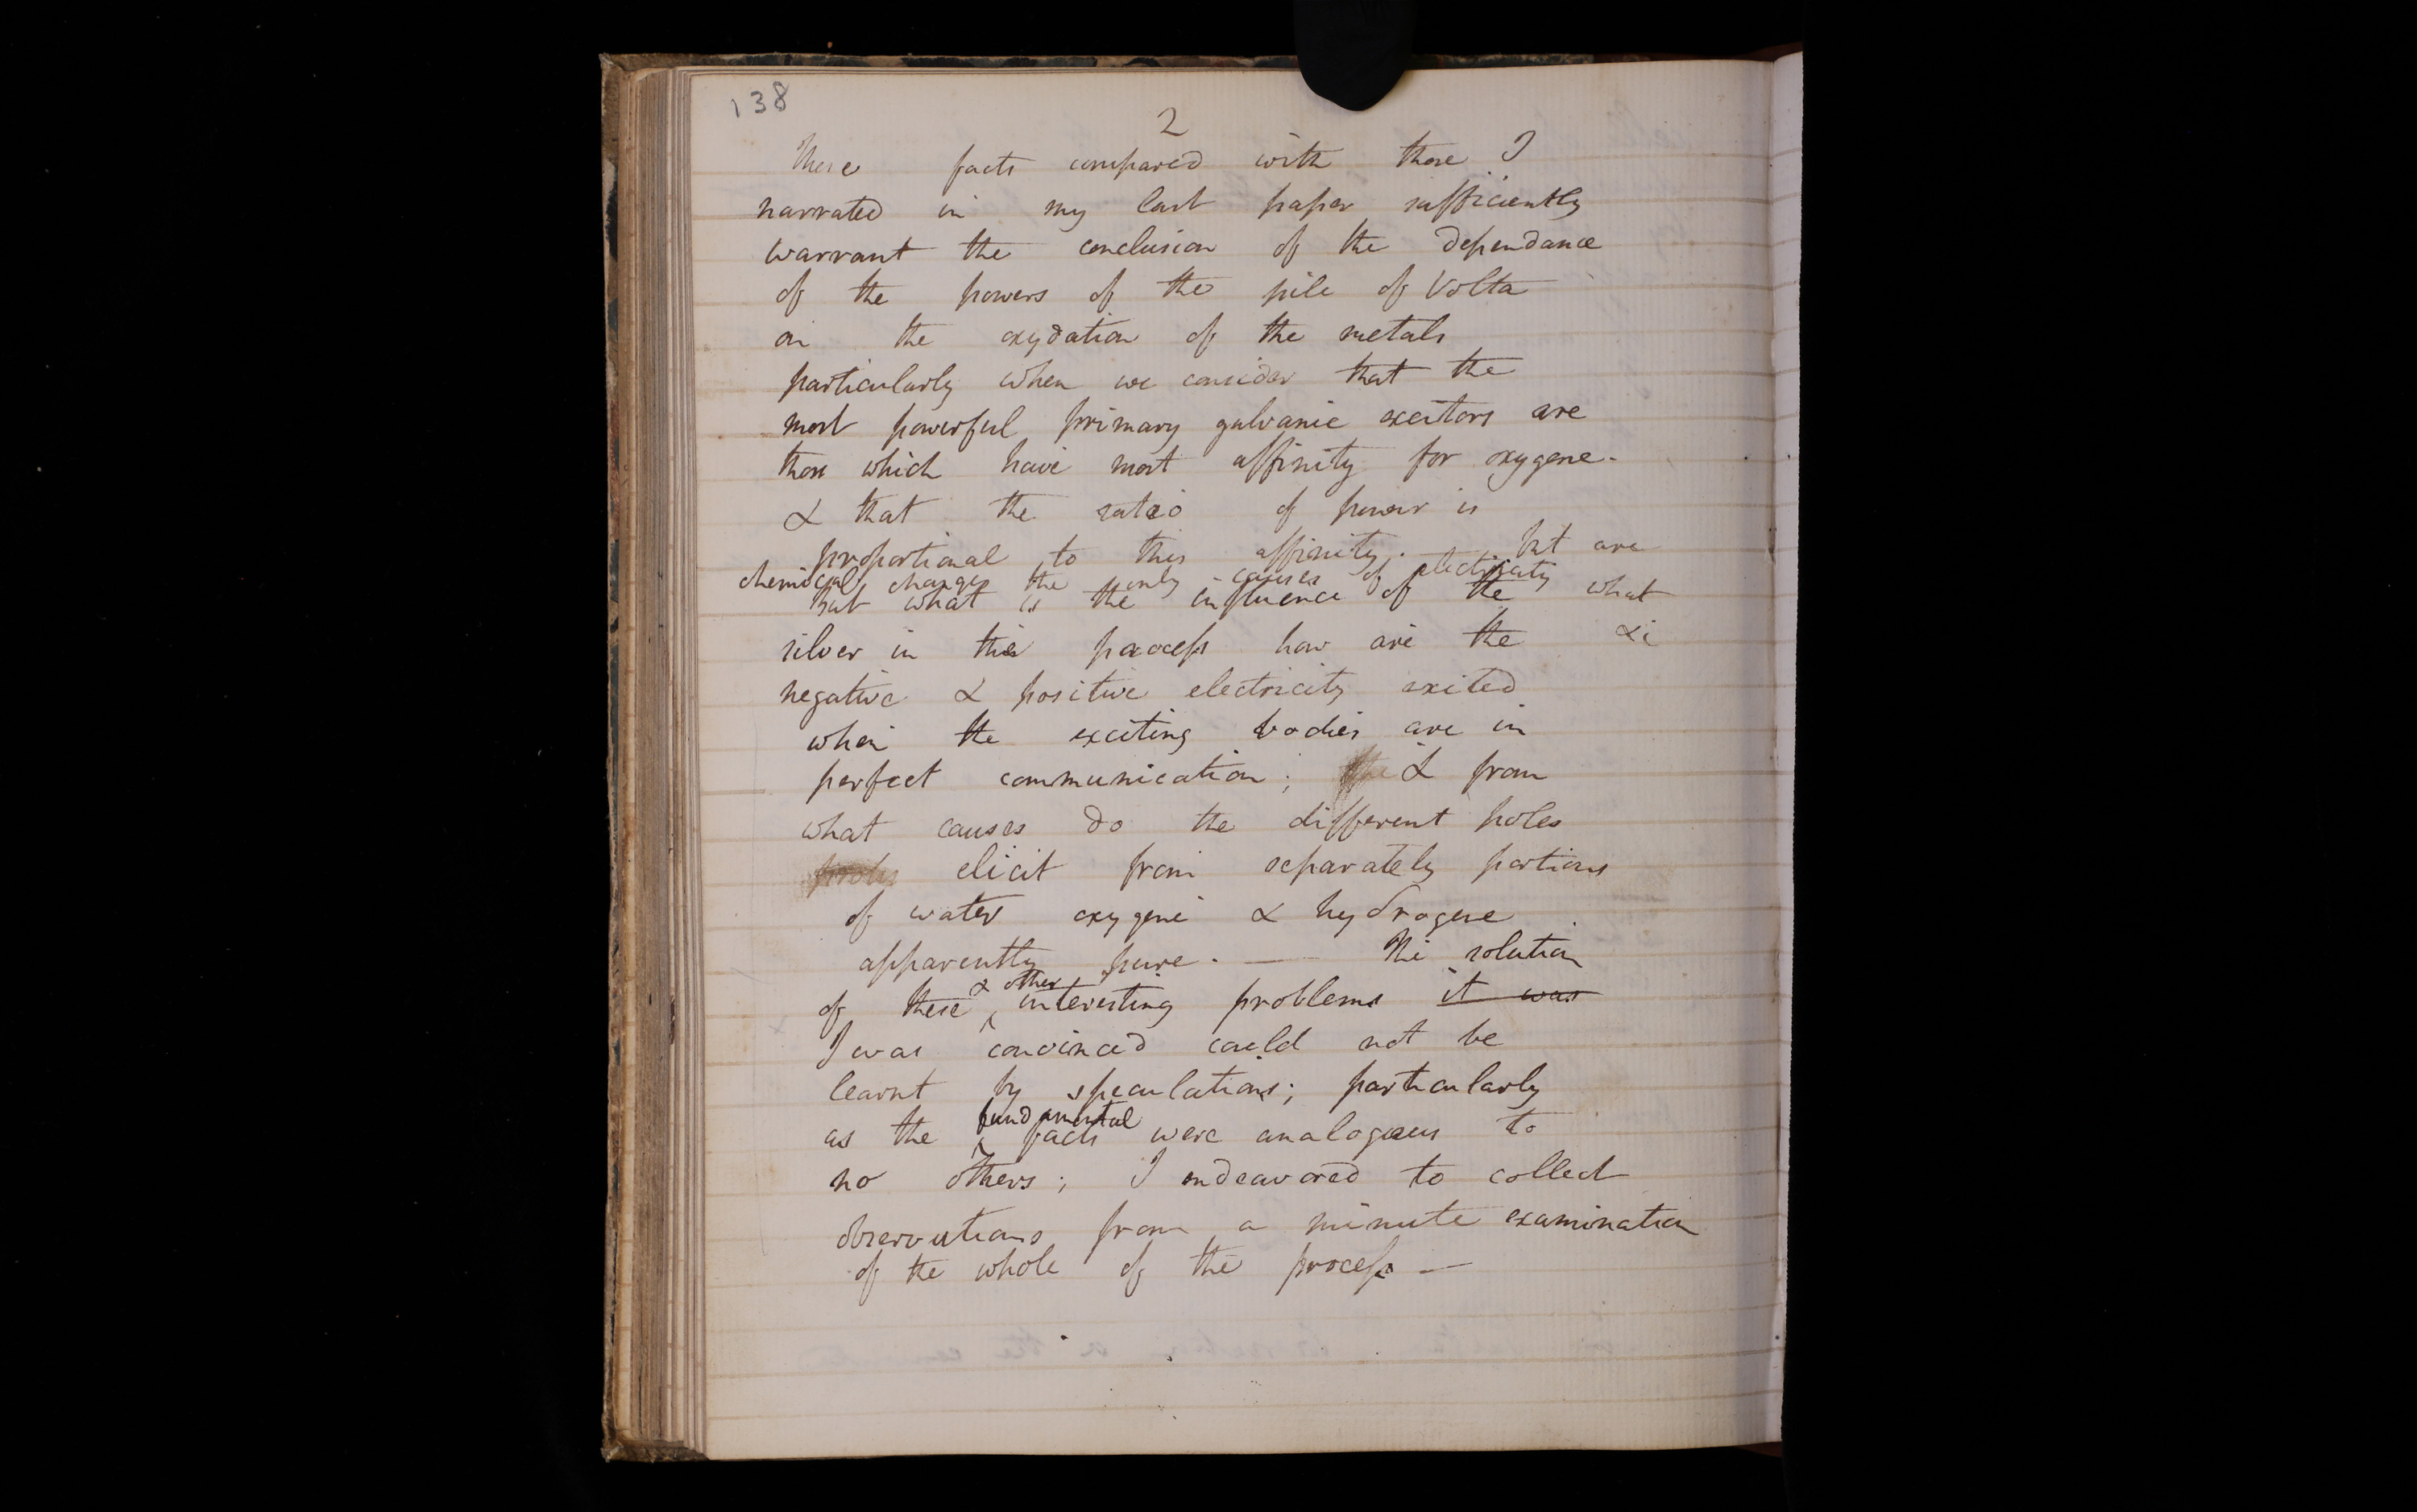 138
2
These facts compared with those I
narrated in my last paper sufficiently
warrant the conclusion of the dependance
of the powers of the pile of Volta
on the oxydation of the metals
particularly when we consider that the
most powerful primary galvanic excitors are
those which have most affinity for oxygene.
& that the ratio of power is
proportional to this affinity. — but are
chemical changes the only causes of electricity
But what is the influence of the what
silver in this process how are the &c
negative & positive electricity exited
when the exciting bodies are in
perfect communication; the & from
what causes do the different poles
elicit from separately portions
of water oxygene & hydrogene
apparently pure. — The solution
& other
of these interesting problems it was
I was convinced could not be
learnt by speculations; particularly
fundamental
as the facts were analogous to
no others; I endeavored to collect
observations from a minute examination
of the whole of the process —